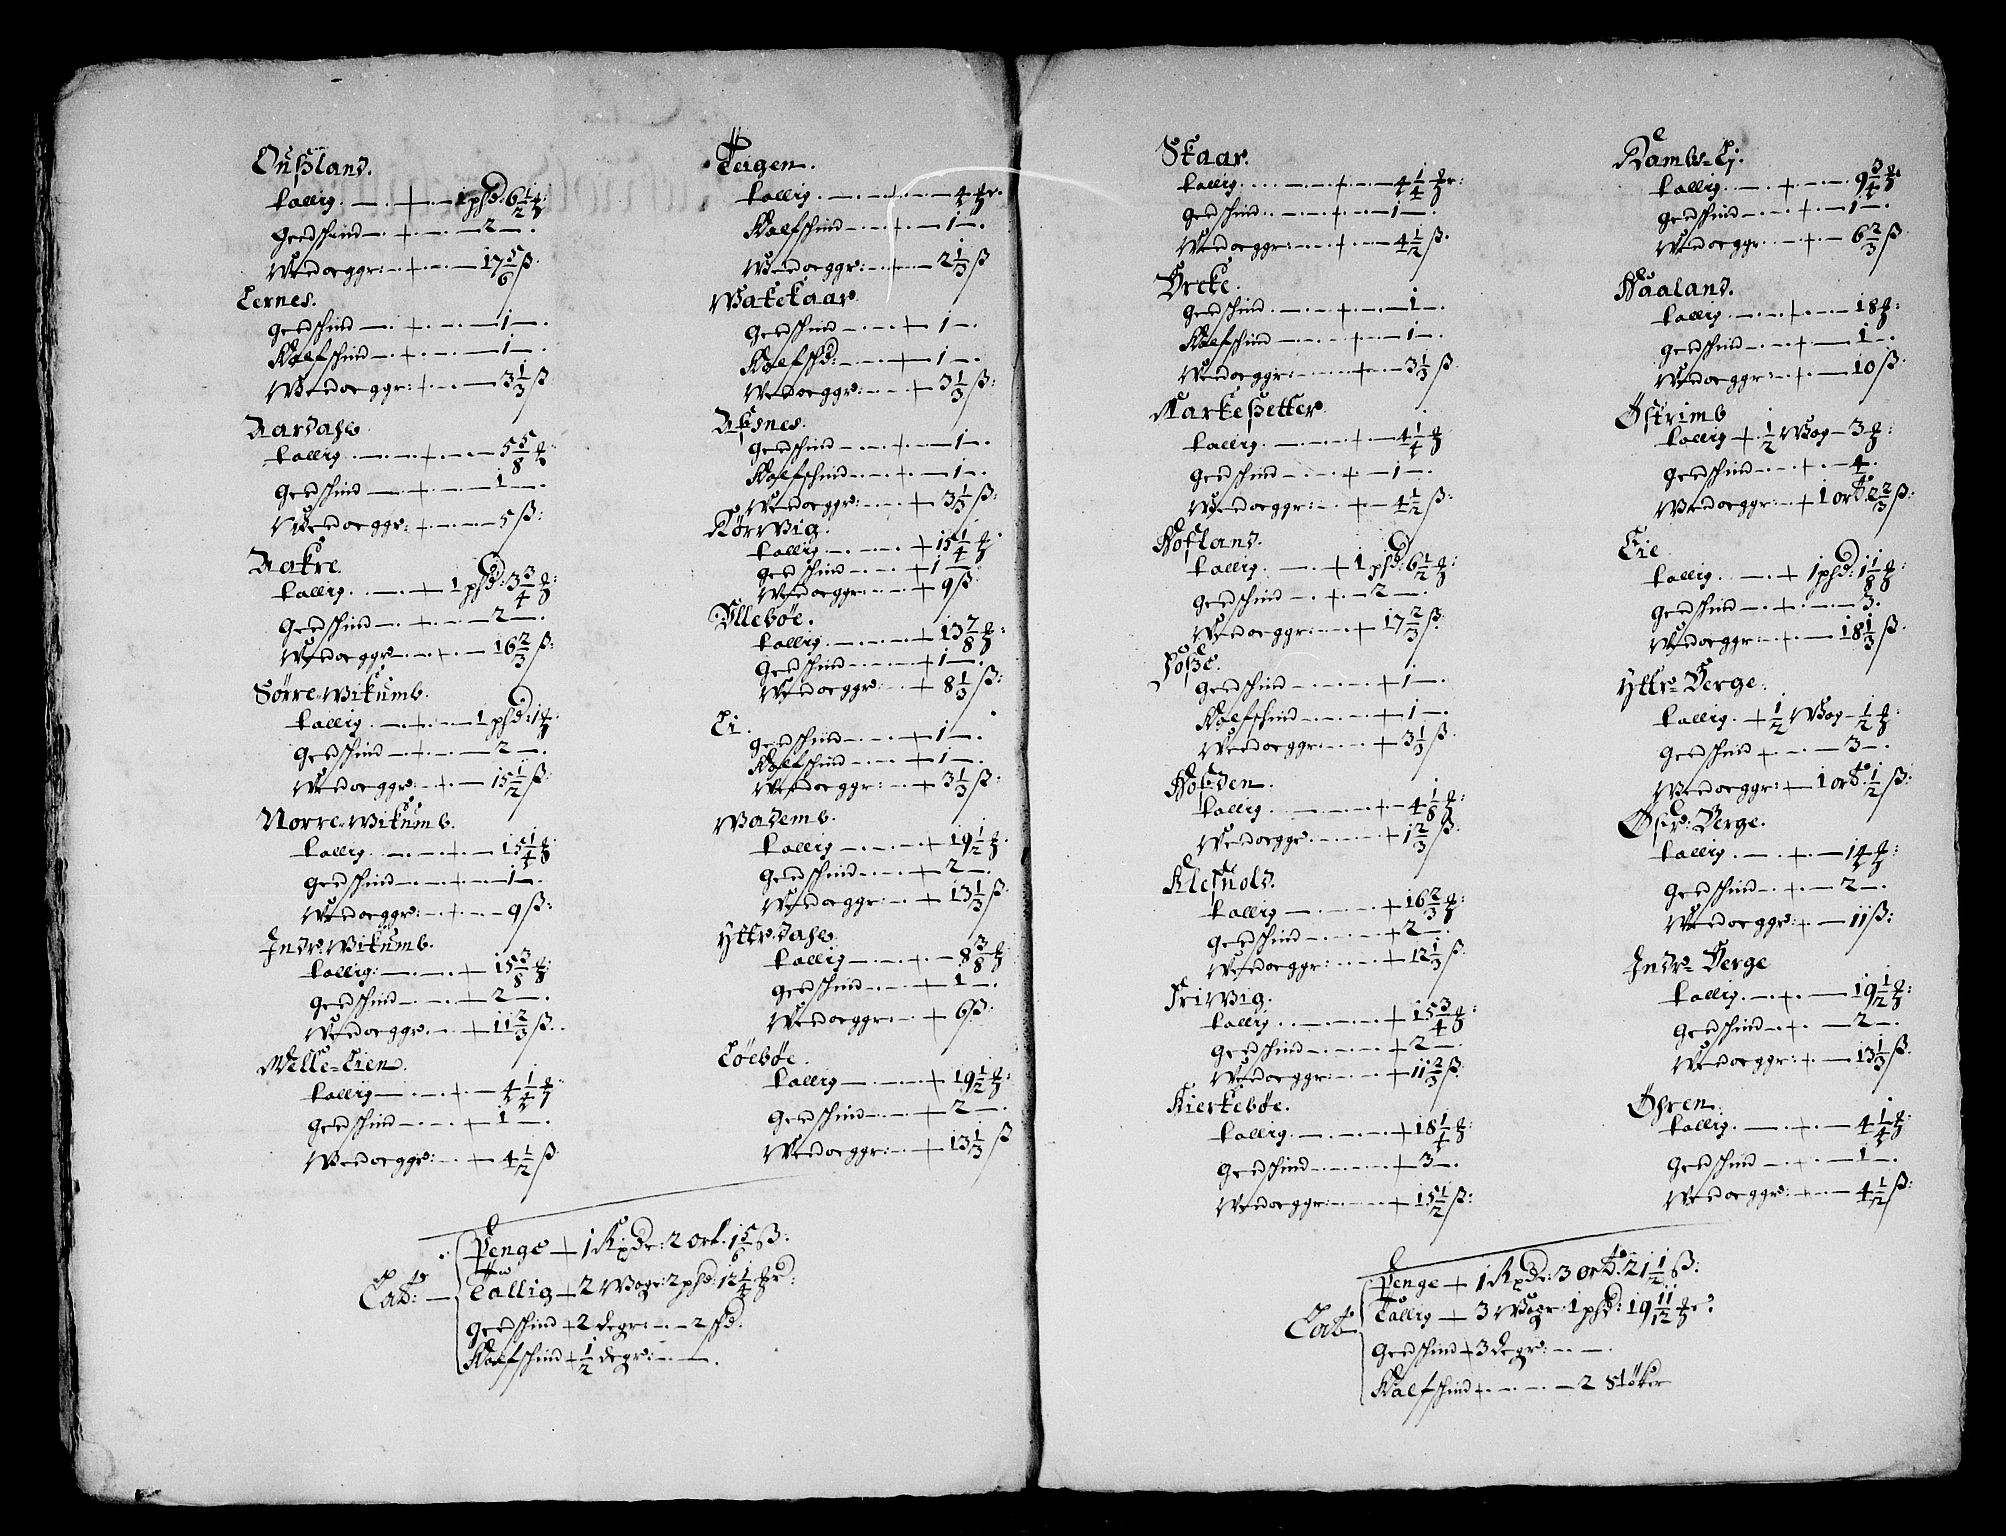 Oußland.
Tallig. — + — 1 pßd: 6 1/2 ℔:
Gedschind — + — 2 —.
Wedoeggr: — + — 17 5/6 ß.
Ternes.
Gedschind — + — 1 —.
Kalfschind — + — 1 —.
Wedoeggr: — + — 3 1/3 ß
Aardahl
Tallig. — + — 5 5/8 ℔
Gedschind — + — 1 —.
Wedoeggr: — + — 5 ß:
Aakre.
Tallig. — + 1 pßd: 3 3/4 ℔:
Gedschind — + — 2 —.
Wedoeggr — + — 16 2/3 ß:
Sørre-Wikumb.
Tallig. — + — 1 pßd: 1 ℔:
Gedschind — + — 2 —.
Wedoeggr: — + — 15 1/2 ß:
Norre-Wikumb.
Tallig. — + — 15 1/4 ℔:
Gedschind — + — 1 —.
Wedoeggr: — + — 9 ß:
Indr: Wikumb.
Tallig: — + 15 3/8 ℔:
Gedschind — + 2 —.
Wedoeggr. — + 11 2/3 ß.
Melle-Eien.
Tallig — + — 4 1/4 ℔:
Gedschind — + 1 —.
Wedoeggr: — + 4 1/2 ß:
Teigen.
Tallig — + — 4 ℔r.
Kalfschind — + — 1 —.
Wedoeggr: — + — 2 1/3 ß
Watekaar
Gedschind — + 1 —.
Kalfschd: — + 1 —.
Wedoeggr: — + 3 1/3 ß:
Alsnes.
Gedschind — + — 1 —.
Kalfschind — + — 1 —.
Wedoeggr: — + 3 1/3 ß:
Rørwig.
Tallig — + 15 1/4 ℔.
Gedschind — + 1 —
Wedoeggr: — + 9 ß:
Yllebøe.
Tallig. — + 13 7/8 ℔:
Gedschind — + 1 —.
Wedoeggr: — + 8 1/3 ß:
Ei.
Gedschind — + 1 —.
Kalfschind — + 1 —.
Wedoeggr: — + 3 1/3 ß:
Wademb.
Tallig — + 19 1/2 ℔:
Gedschind — + 2 —.
Wedoeggr: — + 13 1/3 ß
Yttr: Dahl
Tallig — + — 8 3/8 ℔:
Gedschind — + 1 —.
Wedoeggr: — + 6 ß:
Løebøe.
Tallig — + 19 1/2 ℔:
Gedschind — + 2 —.
Wedoeggr: — + 13 1/3 ß
Lat: —
Penge — + 1 Rixdr: 2 Ort. 15/6 ß:
Tallig — + 2 Woge: 2 pßd: 12 1/4 ℔r:
Gedschind + 2 degr: — 2 ßd.
Kalfschind + 1/2 degr: — .
Skaar.
Tallig. — + — 4 1/4 ℔r:
Gedschin. — + — 1 —.
Wedoeggr: — + — 4 1/2 ß.
Brcke.
Gedschind. — + — 1 —.
Kalfschind — + — 1 —.
Wedoeggr: — + — 3 1/3 ß
Markeßetter
Tallig. — + — 4 1/4 ℔
Gedschind — + — 1 —.
Wedoeggr: — + — 4 1/2 ß:
Hofland.
Tallig. — + 1 pßd: 6 1/2 ℔:
Gedschind — + — 2 —.
Wedoeggr: — + 17 2/3 ß:
Joße.
Gedschind — + 1 —.
Kalfschind — + 1 —.
Wedoeggr: — + 3 1/3 ß.
Hofden.
Tallig. — + — 4 1/8 ℔:
Wedoeggr — + 1 2/3 ß:
Klefnold.
Tallig — + 16 2/3 ℔:
Gedschind — + 2 —.
Wedoeggr: — + 12 1/3 ß.
Friwig.
Tallig. — + 15 3/4 ℔:
Gedschind — + 2 —.
Wedoeggr: — + 11 2/3 ß.
Kierkebøe.
Tallig. — + 18 1/4 ℔:
Gedschind — + 3 —.
Wedoeggr: — + 15 1/2 ß:
Rambs-Ej.
Tallig. — + — 9 3/4 ℔
Gedschind — + — 1 —.
Wedoeggr. — + — 6 2/3 ß
Haaland.
Tallig. — + — 18 ℔:
Gedschind — + — 1 —.
Wedoeggr: — + — 10 ß
Østrimb
Tallig + 1/2 Wog — 3 ℔:
Gedschind — + — 4.
Wedoeggr: — + 1 ort. 2 2/3 ß:
Eie.
Tallig. — + 1 pßd: 1 1/8 ℔
Gedschind — + — 3.
Wedoeggr — + — 18 1/3 ß.
Yttr-Berge.
Tallig. + 1/2 Wog — 1/2 ℔:
Gedschind + — 3 —.
Wedoeggr: + 1 ort. 1/2 ß:
Øfr: Berge.
Tallig. — + — 14 ℔:
Gedschind — + — 2 —.
Wedoeggr: + — 11 ß:
Indr-Berge
Tallig. — + — 19 1/2 ℔:
Gedschind — + — 2 —.
Wedoeggr: + — 13 1/3 ß.
Øhren.
Tallig. — + — 4 1/4 ℔:
Gedschind — + — 1 —.
Wedoeggr: — + — 4 1/2 ß:
Lat
Penge + 1 Rixdr: 3 Ort. 21 1/2 ß:
Tallig + 3 Wogr 1 pßd: 19 11/12 ℔r.
Gedschind + 3 degr: — .
Kalfschind + — 2 Støker